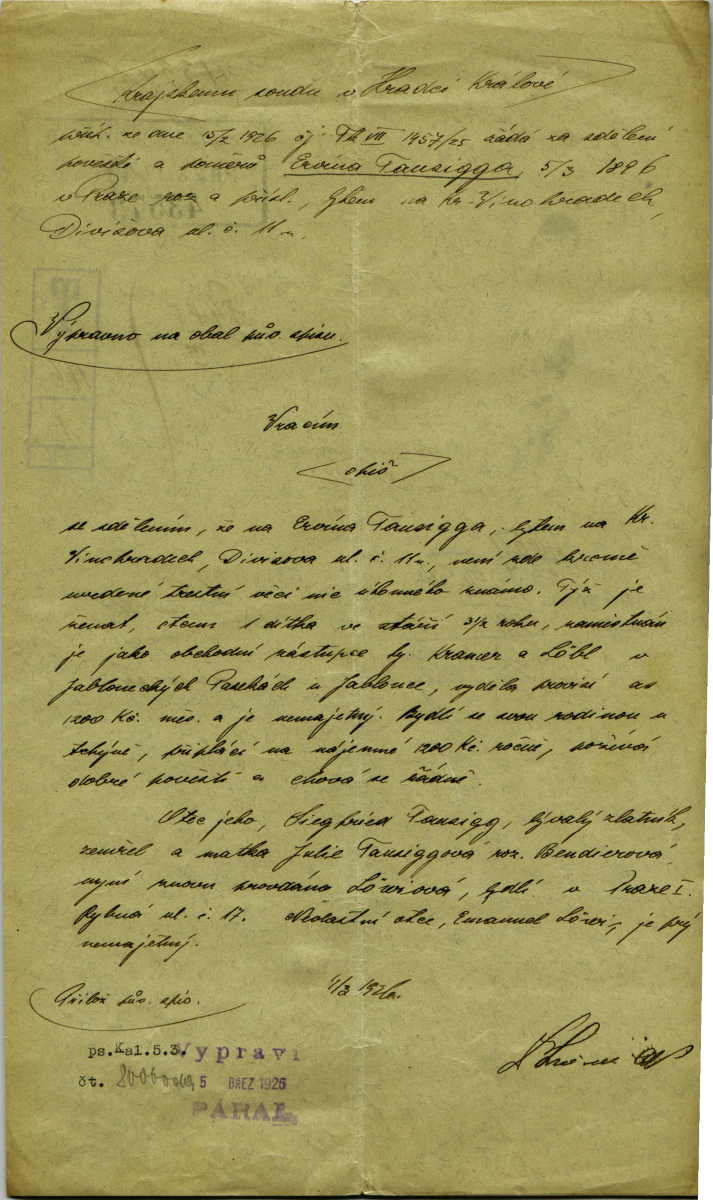 Krajskému soudu v Hradci Králové
příp. ze dne 15/2 1926 čj Tk VII 1957/25 žádá za sdělení
pověsti a poměrů Ervína Taussigga, 5/3 1896
v Praze roz. a přísl., bytem na Kr. Vinohradech,
Divišova ul. č. 11 n.
Výpravno na obal pův. spisu.
Vracím
spis
se sdělením, že na Ervína Taussigga, bytem na Kr.
Vinohradech, Divišova ul. č. 11 n., není zde kromě
uvedené trestní věci nic úhonného známo. Týž je
ženat, otcem 1 dítka ve stáří 3/4 roku, zaměstnán
je jako obchodní zástupce fy. Kramer a Löbl v
Jabloneckých Pasekách u Jablonce, vydělá provisí as
1200 Kč. měs. a je nemajetný. Bydlí se svou rodinou u
tchýně, připlácí na nájemné 1200 Kč. ročně, požívá
dobré pověsti a chová se řádně.
Otec jeho, Siegfried Taussigg, bývalý zlatník,
zemřel a matka Julie Taussiggová roz. Bendierová
nyní znovu provdána Löwiová, bydlí v Praze I.
Rybná ul. č. 17. Nevlastní otec, Emanuel Löwi, je prý
nemajetný.
Přilož pův. spis.
4/3 1926.
ps.Kal.5.3.
Vypraví
čt.
5 BŘEZ 1926
PÁRAL